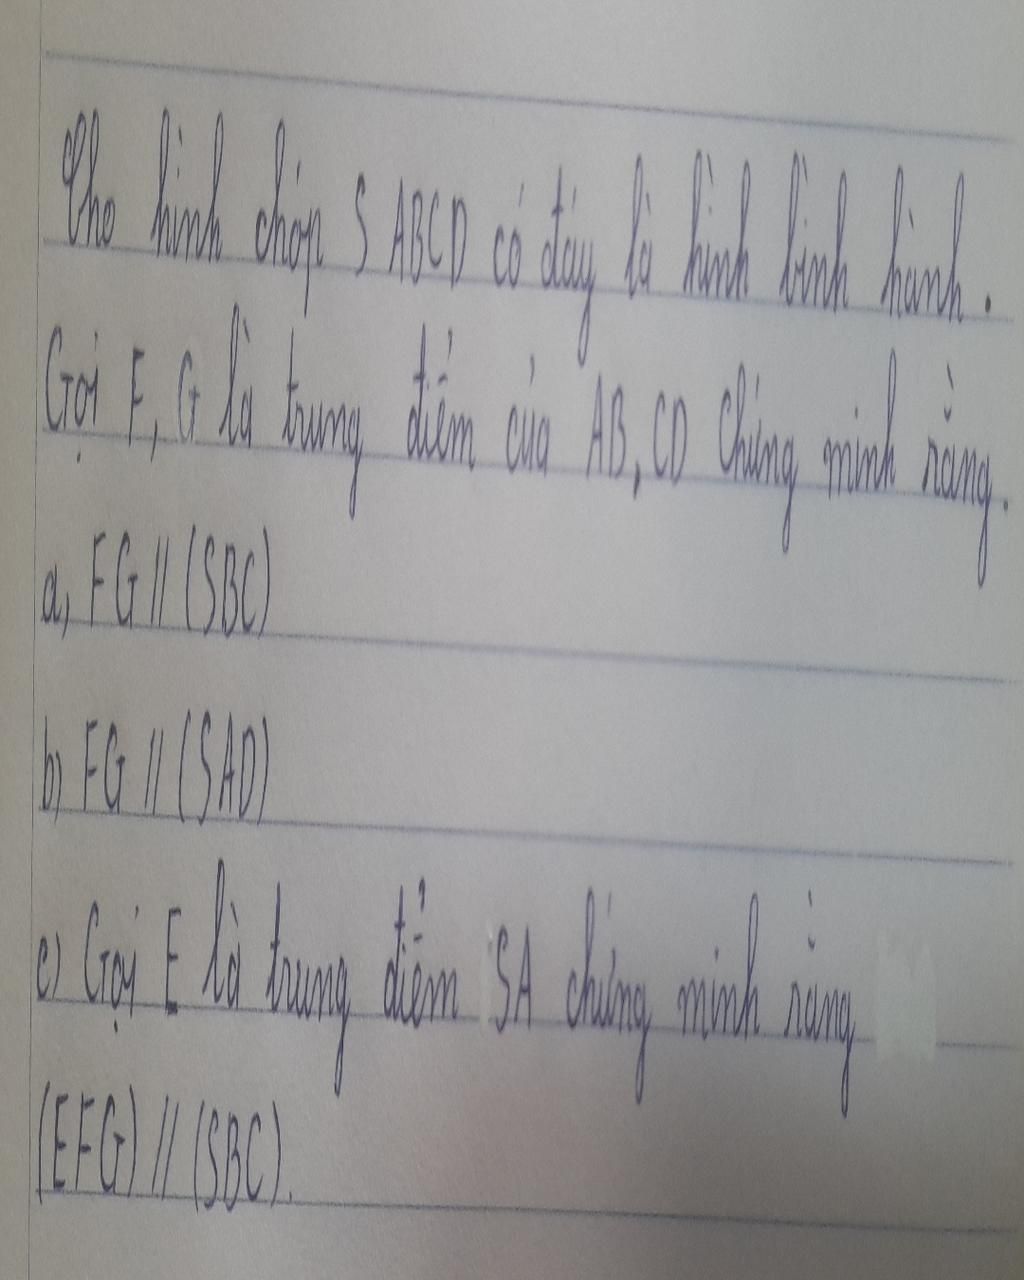 Cho hình chóp S ABCD có đáy là hình bình hành.
Gọi F, G là trung điểm của AB, CD Chứng minh rằng.
a, FG // (SBC)
b) FG // (SAD)
c) Gọi E là trung điểm SA chứng minh rằng
(EFG) // (SBC).